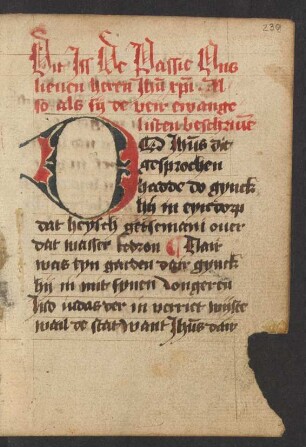 239
Dit Is De Passie Uns
lieuen heren Jhu xpi Al
so als sy de veir ewange
listen beschriue
DO Jhus dit
gesprochen
hadde do gynck
hy in eyn dorp
dat heysch getsemani ouer
dat wasser cedron Dair
was eyn garden dair gynck
hy in mit synen Jongeren
Jnd iudas der in verriet wyste
wail de stat Want Jhus dair